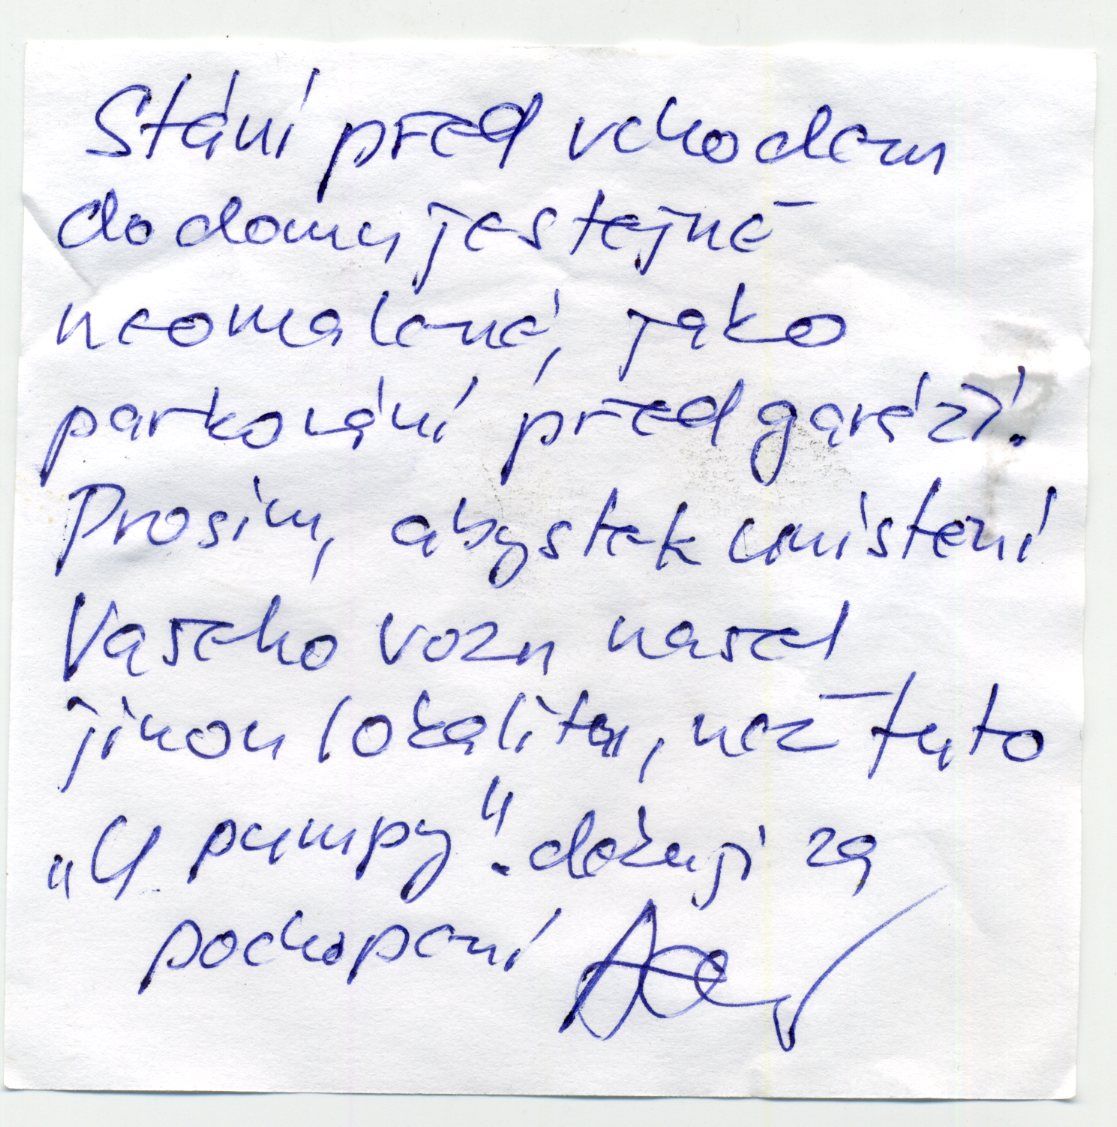 Stání před vchodem
do domu je stejně
neomalené, jako
parkování před garáží.
Prosím, abyste k umístění
Vašeho vozu našel
jinou lokalitu, než tuto
„U pumpy“. děkuji za
pochopení